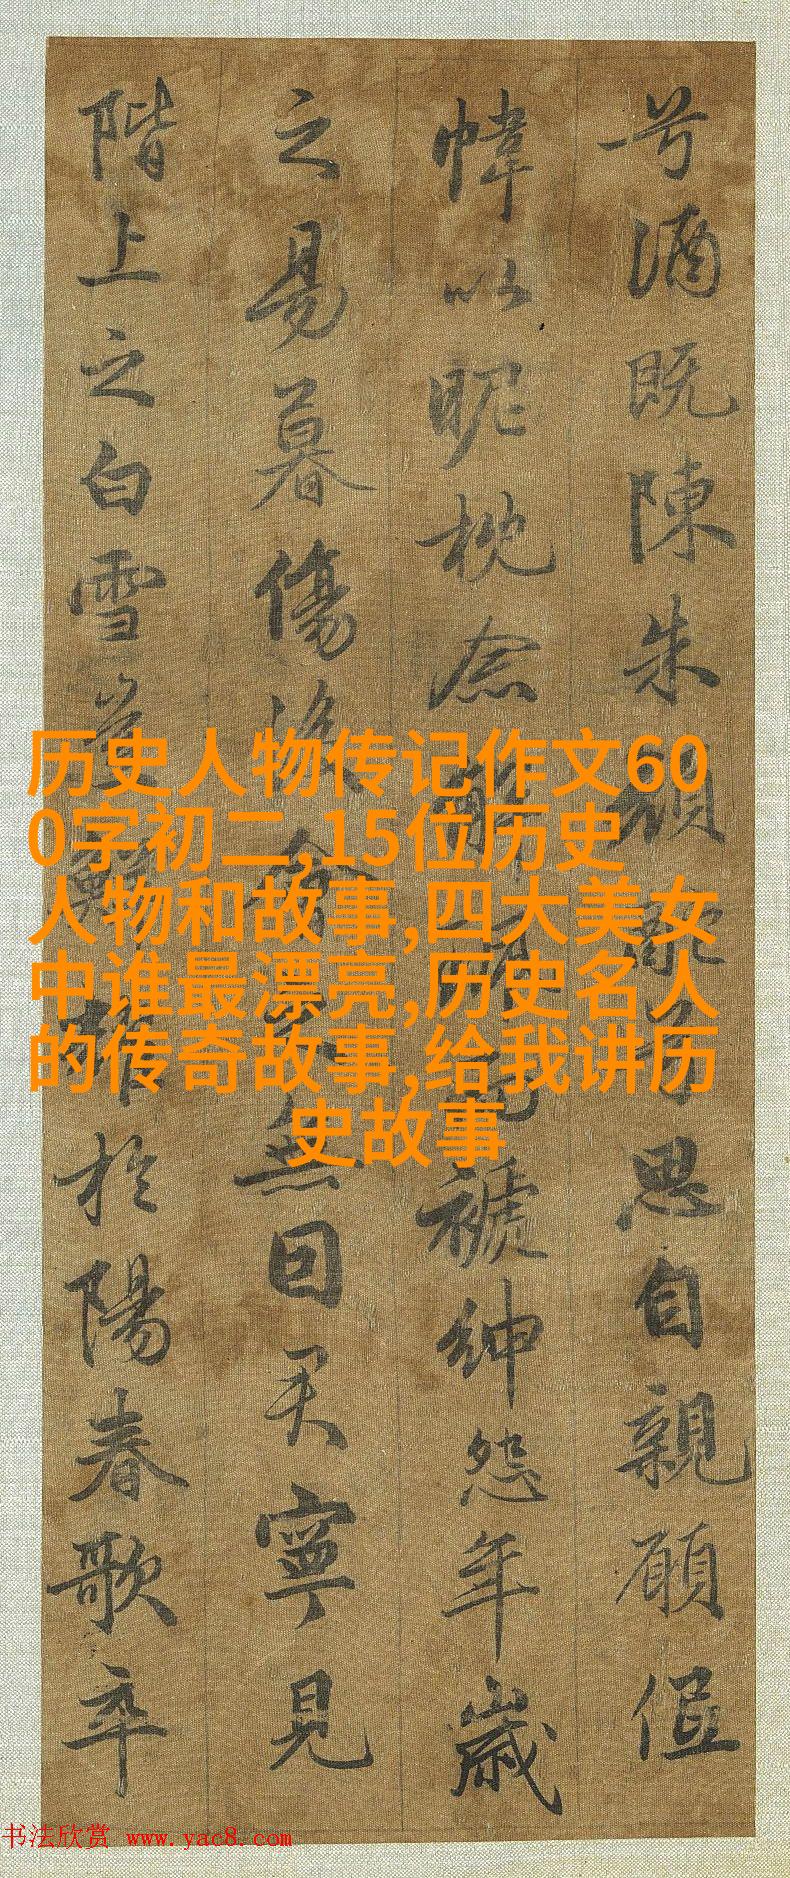 兮酒既陳朱顏酡兮思自親願低
幃以昵枕念解珮而褫紳怨年歲
之易暮傷後會之無因君寧見
階上之白雪豈鮮耀於陽春歌卒
历史人物传记作文60
0字初二,15位历史
人物和故事,四大美女
中谁最漂亮,历史名人
的传奇故事,给我讲历
史故事
书法欣赏 www.yac8.com